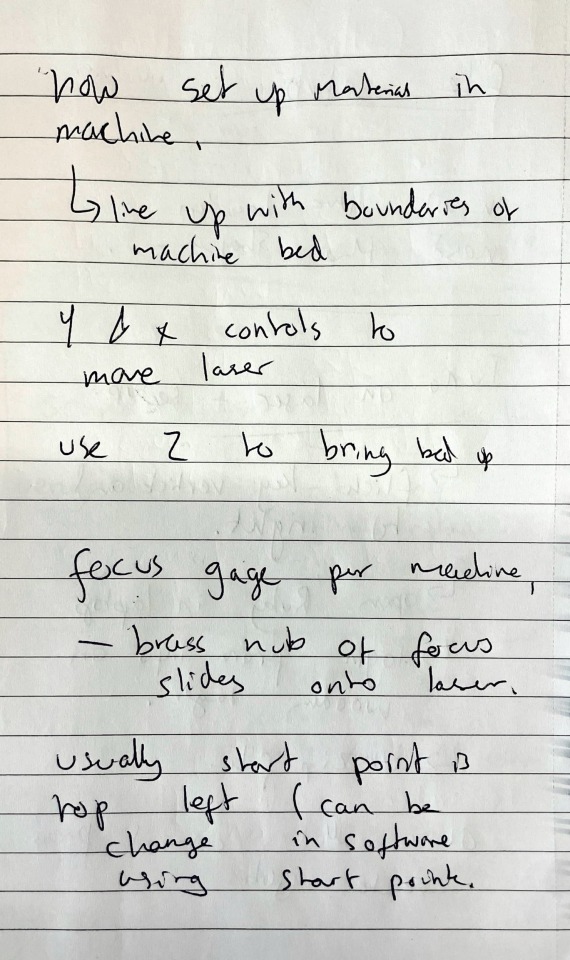 now set up material in
machine,
↳ line up with boundaries of
machine bed
Y & X controls to
move laser
use Z to bring bed up
focus gage per machine,
— brass nub of focus
slides onto laser.
usually start point is
top left (can be
change in software
using start point.